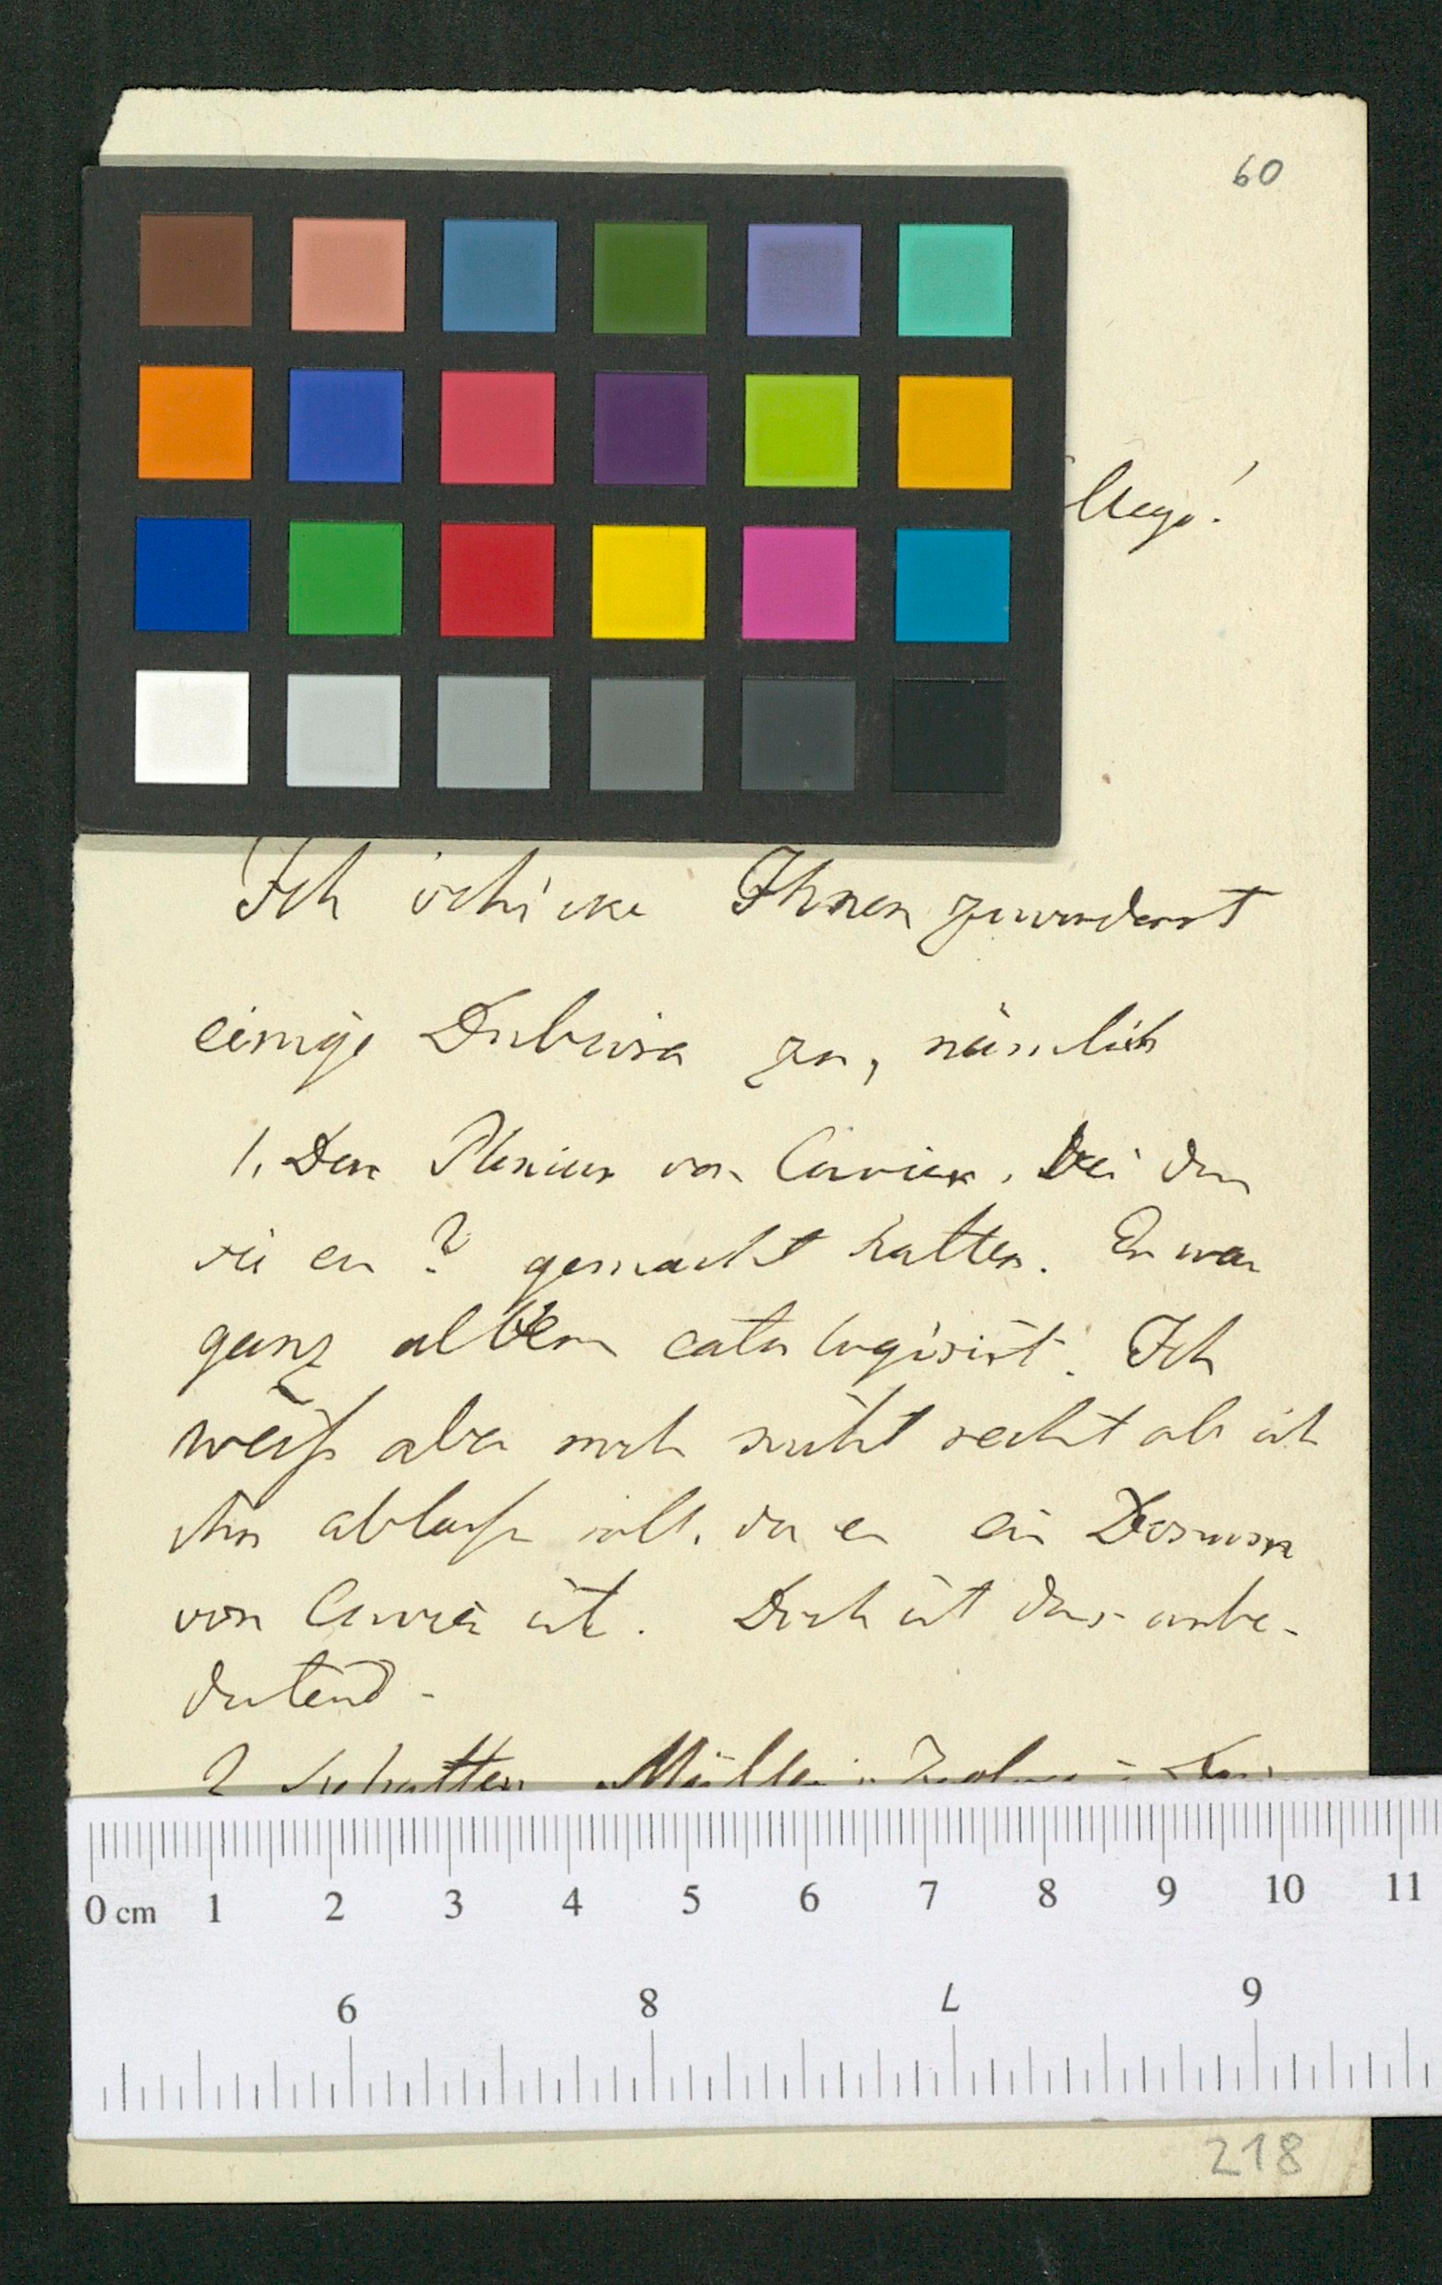 60
llege!
Ich schicke Ihnen zuvorderst
einige Dubiosa zu, nämlich
1. Den Plinius von Cuvier, bei dem
sie ein ? gemacht hatten. Er war
ganz albern catalogisirt. Ich
weiß aber noch nicht recht ob ich
ihn ablaße soll, da er ein
von Cuvier ist. Doch ist das unbe-
deutend.
2 Sie hatten Müller
0 cm 1 2 3 4 5 6 7 8 9 10 11
6 8 7 9
218